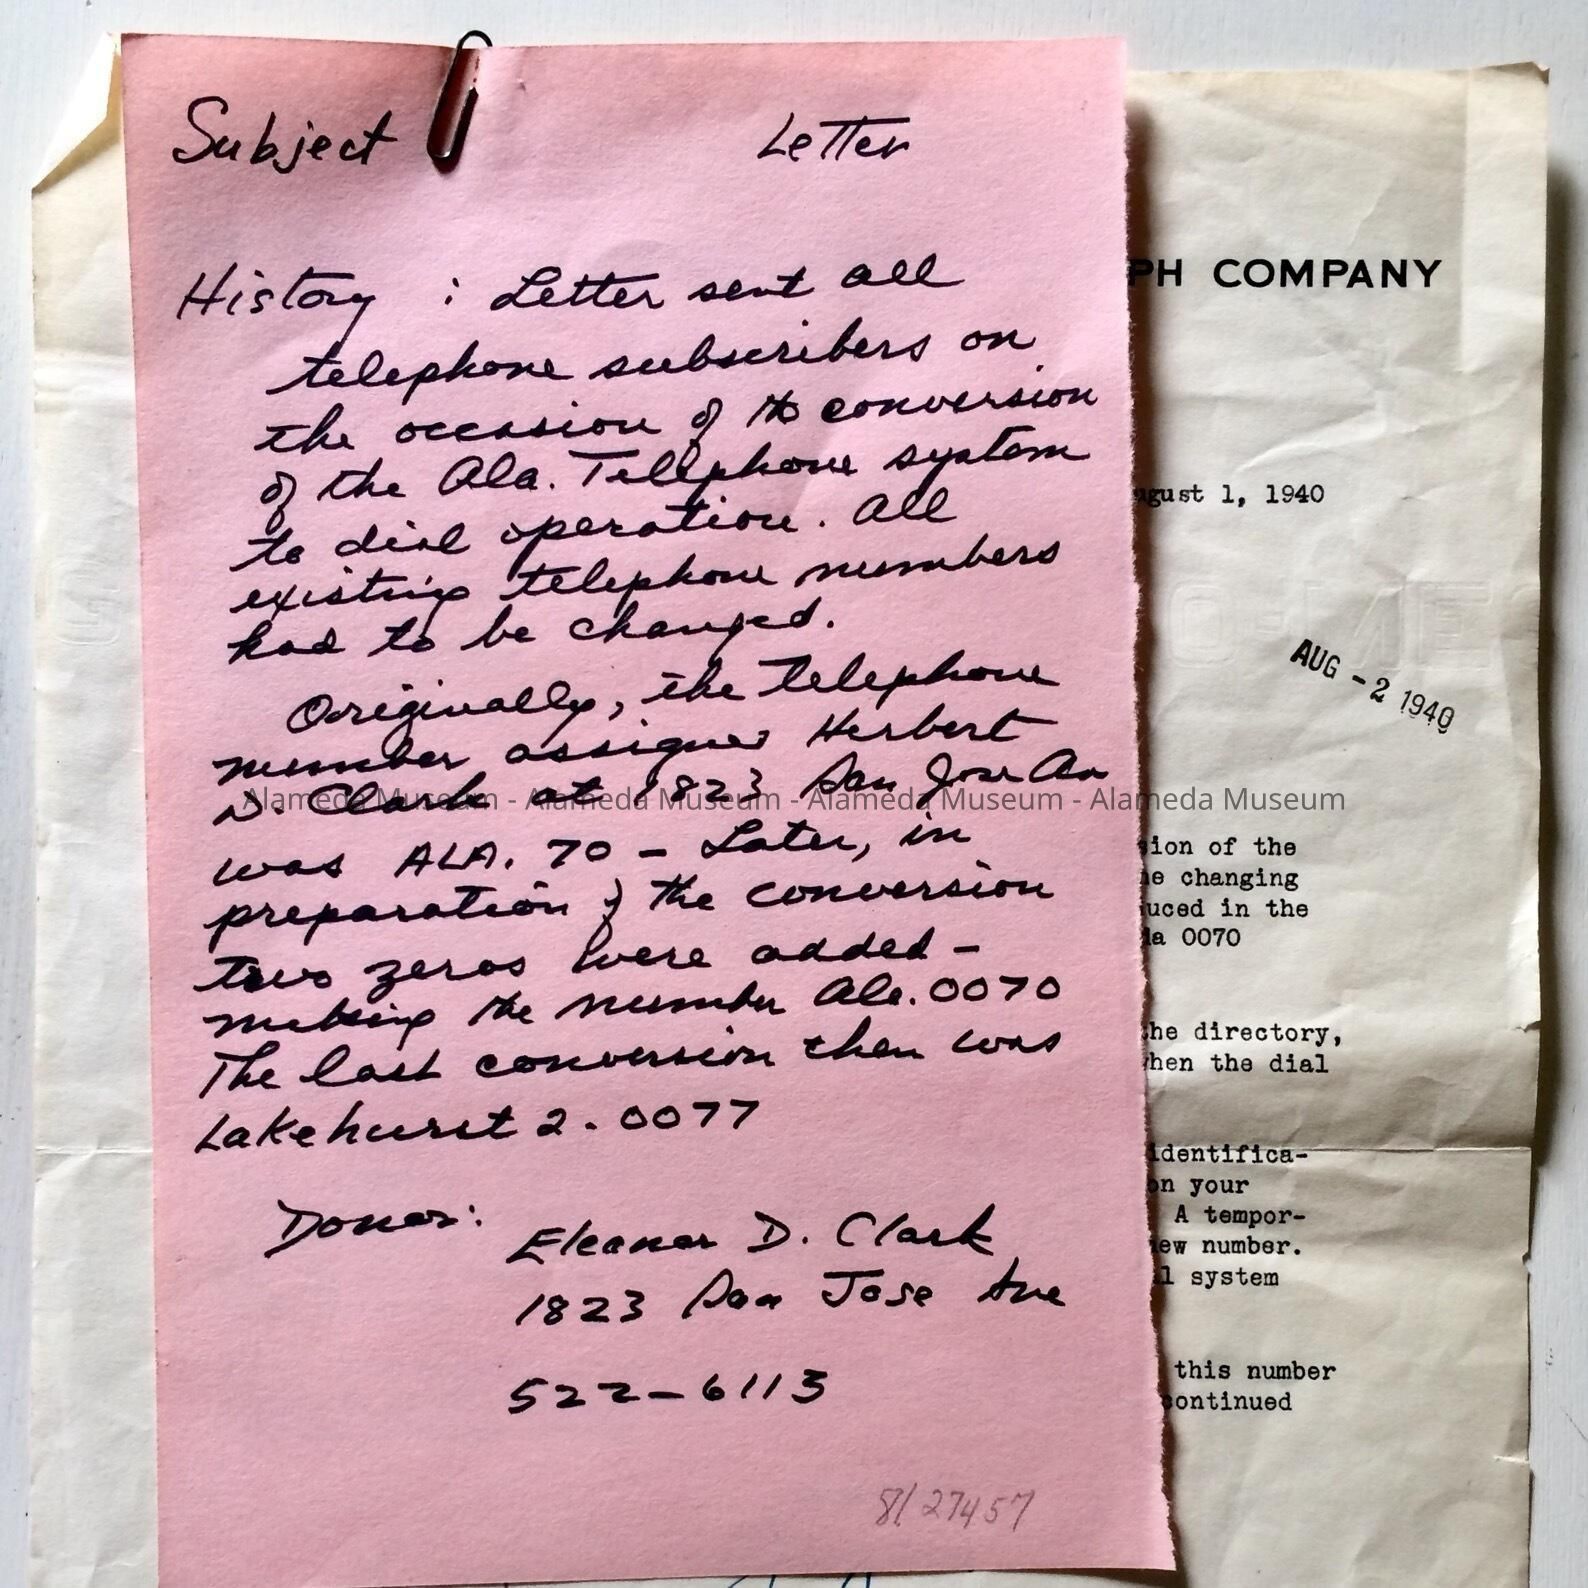 Subject Letter
History : Letter sent all
telephone subscribers on
the occasion of the conversion
of the Ala. Telephone system
to dial operation. All
existing telephone numbers
had to be changed.
Originally, the telephone
number assigned Herbert
D. Clark at 1823 San Jose Av
was ALA. 70 – Later, in
preparation of the conversion
two zeros were added –
making the number Ala. 0070
The last conversion then was
Lakehurst 2. 0077
Donor: Eleanor D. Clark
1823 San Jose Ave
522-6113
8/27457
PH COMPANY
ugust 1, 1940
AUG -2 1940
sion of the
e changing
uced in the
la 0070
he directory,
hen the dial
identifica-
on your
A tempor-
ew number.
l system
this number
continued
Alameda Museum - Alameda Museum - Alameda Museum - Alameda Museum